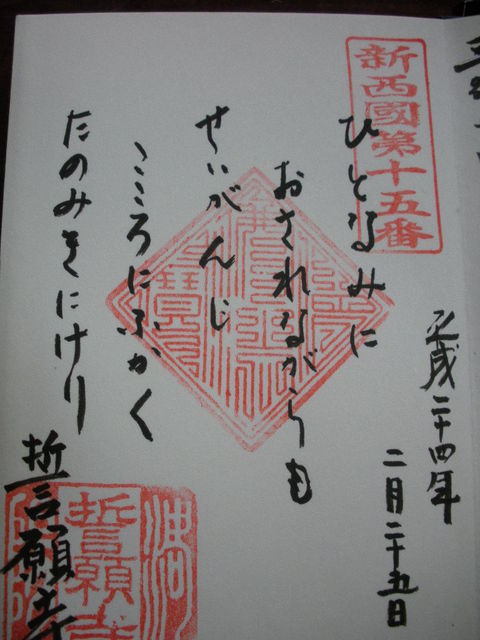 新西國第十五番
平成二十四年
二月二十五日
ひとなみに
おされながらも
せいがんじ
こころにふかく
たのみきにけり
誓願寺
誓願寺